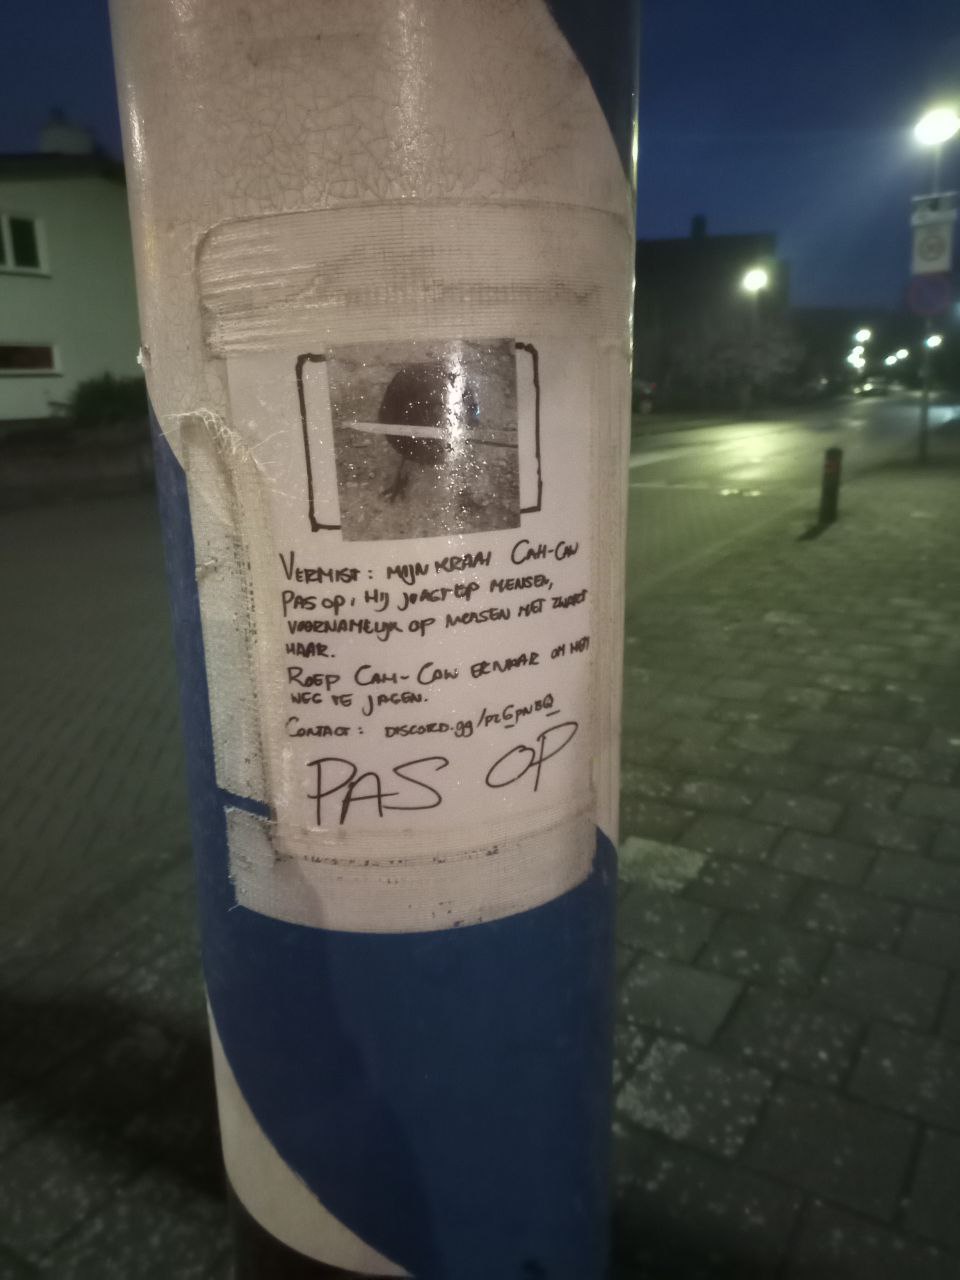 VERMIST: MIJN KRAAI CAH-CAW
PAS OP, HIJ JAAGT OP MENSEN,
VOORNAMELIJK OP MENSEN MET ZWART
HAAR.
ROEP CAH-CAW ERNAAR OM HEM
WEG TE JAGEN.
CONTACT: DISCORD.gg/
PAS OP